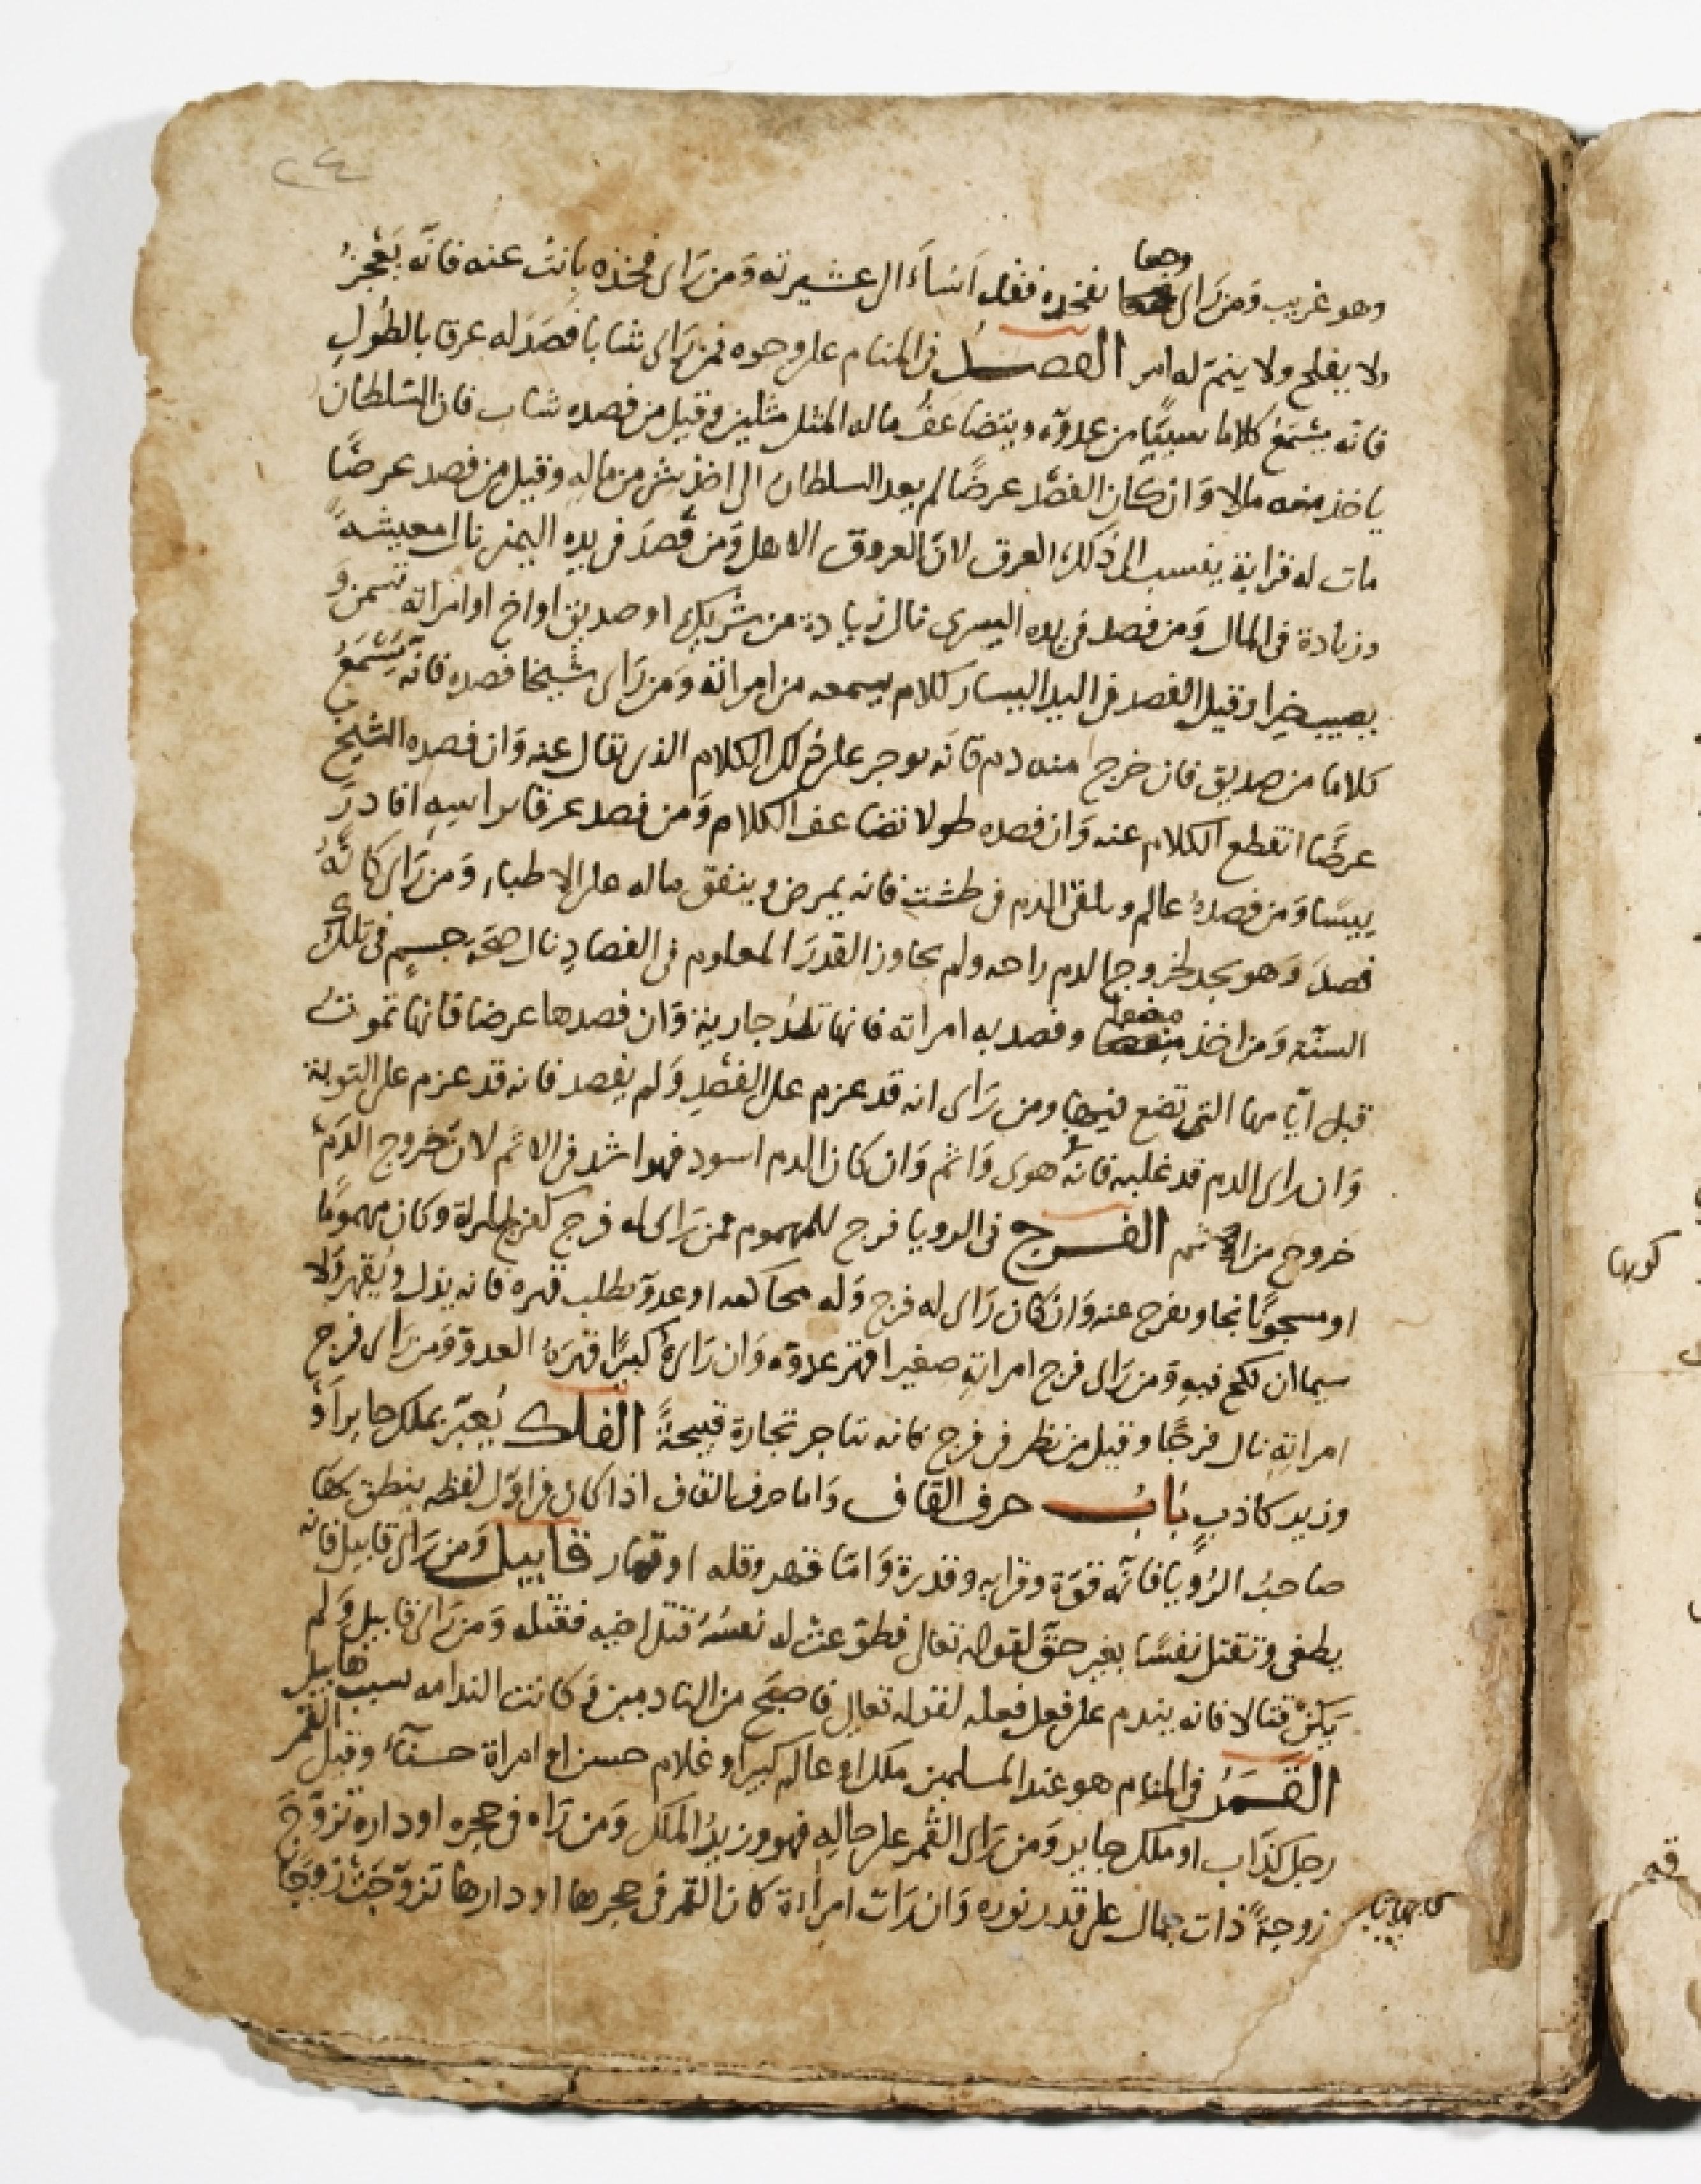 ٢٤
وهو غريب وَمن رَاى وجعا بفخذه فقد اَسَاءَ الى عشيرته وَمن رَاى فخذه بانت عنه فانّه يَعْجزُ
ولا يفلح ولا يتم له امر الفصدُ فى المنام على وجوه فمن رَاى شابا فَصَدَ له عرقا بالطُول
فانه يسْمَعُ كلاما سيّيًا من عدوّه ويتضاعَفُ ماله المثل مثلين وقيل من فصده شاب فان السّلطان
ياخذ منه مالا وَان كان الفصْد عرضًا لم يعد السلطان الى اخذ شى من ماله وقيل من فصد عرضًا
مات له قرابة ينسب الى ذلك العرق لانّ العروق الاهل وَمن فصدَ فى يده اليمنى نال معيشةً
وزيادة فى المال وَمن فصد فى يده اليسرى نال زيادة من شريك او صديق او اخ او امراته تسمن وَ
يصيب خيرا وقيل الفصد فى اليد اليسار كلام يسمعه من امراته وَمن رَاى شيخا فصده فانه يَسْمَعُ
كلاما من صديق فان خرج منه دم فانه يوجر على ذلك الكلام الذى يقال عنه وَان فصده الشيخ
عرضًا انقطع الكلام عنه وَان فصده طولا تضاعف الكلام وَمن فصد عرقا براسه افاد
وَمن فصدهُ عالم وتلقى الدم فى طشت فانه يمرض وينفق ماله على الاطباء وَمن رَاى كانّهُ
فصدَ وَهو يجد لخروج الدم راحه ولم يجاوز القدرَ المعلوم فى الفصادِ نال صحّة جسمٍ فى تلك
السنَة وَمن اخذ مبضعا وفصد به امراته فانها تلدُ جارية وَان فصدها عرضا فانها تموت
قبل ايّامها التى تضع فيها ومن رَاى انه قد عزم على الفصْدِ وَلم يفصد فانه قد عزم على التوبة
وَان راى الدم قد غلبه فانهُ هوى وَاثم وَان كان الدم اسود فهو اشد فى الاثم لان خروج الدّم
خروج من الاثم الفرج فى الرويا فرج للمهموم فمن رَاى له فرج كفرج المراة وكان مهمومًا
او مسجونًا نجا وفرج عنه وَان كان رَاى له فرج وَله محاكمه او عدوّ يطلب قهره فانه يذل ويُقهر وَلا
سيما ان نكح فيه وَمن رَاى فرج امراتهِ صغيرا قهر عدوّه وَان رَاهُ كبيرًا قهرَهُ العدوّ وَمن رَاى فرج
امراتهِ نال فرجًا وقيل من نظر فى فرج كانه تاجر تجارة قبيحةً الفلك يُعبّر بملك جاير اَوْ
وزير كاذبٍ بَابُ حرف القاف وَاما حرف القاف اذا كان فى اوّل لفظه ينطق بها
صاحبُ الرُويا فانّه قوّة وقرابه وقدرة وَامّا قهر وقله او قهار قابيل وَمن رَاى قابيل فانه
يطغى ويقتل نفسًا بغير حق لقوله تعالى فطوّعت له نفسُهُ قتل اخيه فقتله وَمن رَاى قابيل وَلم
يَكنْ قتالا فانه يندم على فعل فعله لقوله تعالى فاصبح من النادمين وَكانت الندامه سبب هابيل
القمرُ فى المنام هو عند المسلمين ملك او عالم كبير او غلام حسن او امراة حسنآء وقيل القمر
رجل كذاب او ملك جاير وَمن رَاى القمر على حالهِ فهو وزيرُ الملك وَمن رَاه فى حجره او داره تزوّجَ
زوجةً ذات جمال على قدر نوره وَان رَات امراءة كان القمر فى حجرها او دارها تزوّجت زوجًا